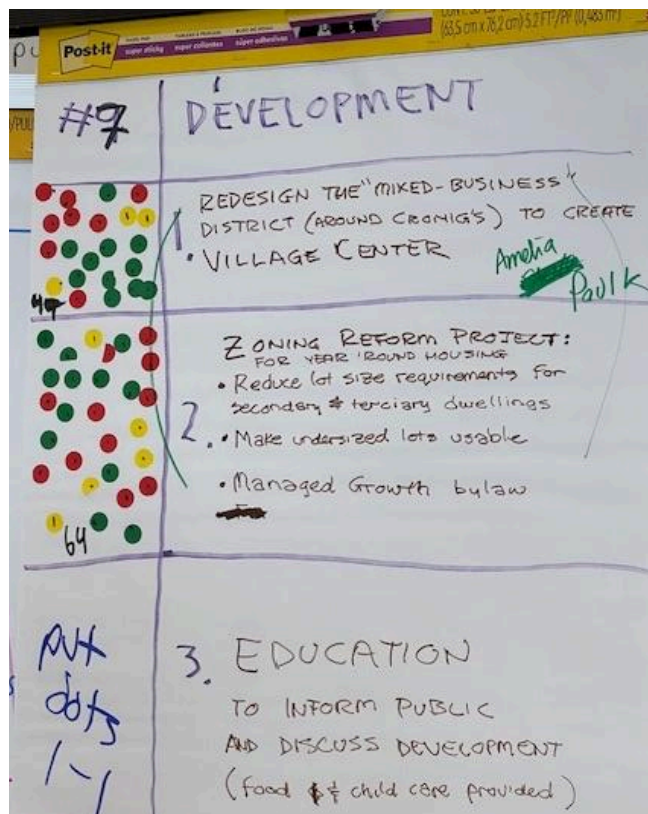 Post-it
super sticky
super collantes
súper adhesivas
(63,5 cm x 76,2 cm) 5.2 FT²/Pi²
#9
DEVELOPMENT
1.
REDESIGN THE "MIXED-BUSINESS"
DISTRICT (AROUND CRONIG'S) TO CREATE
VILLAGE CENTER
Amelia
Paul K
2.
ZONING REFORM PROJECT:
FOR YEAR 'ROUND HOUSING
• Reduce lot size requirements for
secondary & terciary dwellings
• Make undersized lots usable
• Managed Growth bylaw
64
put
dots
3. EDUCATION
TO INFORM PUBLIC
AND DISCUSS DEVELOPMENT
(food & child care provided)